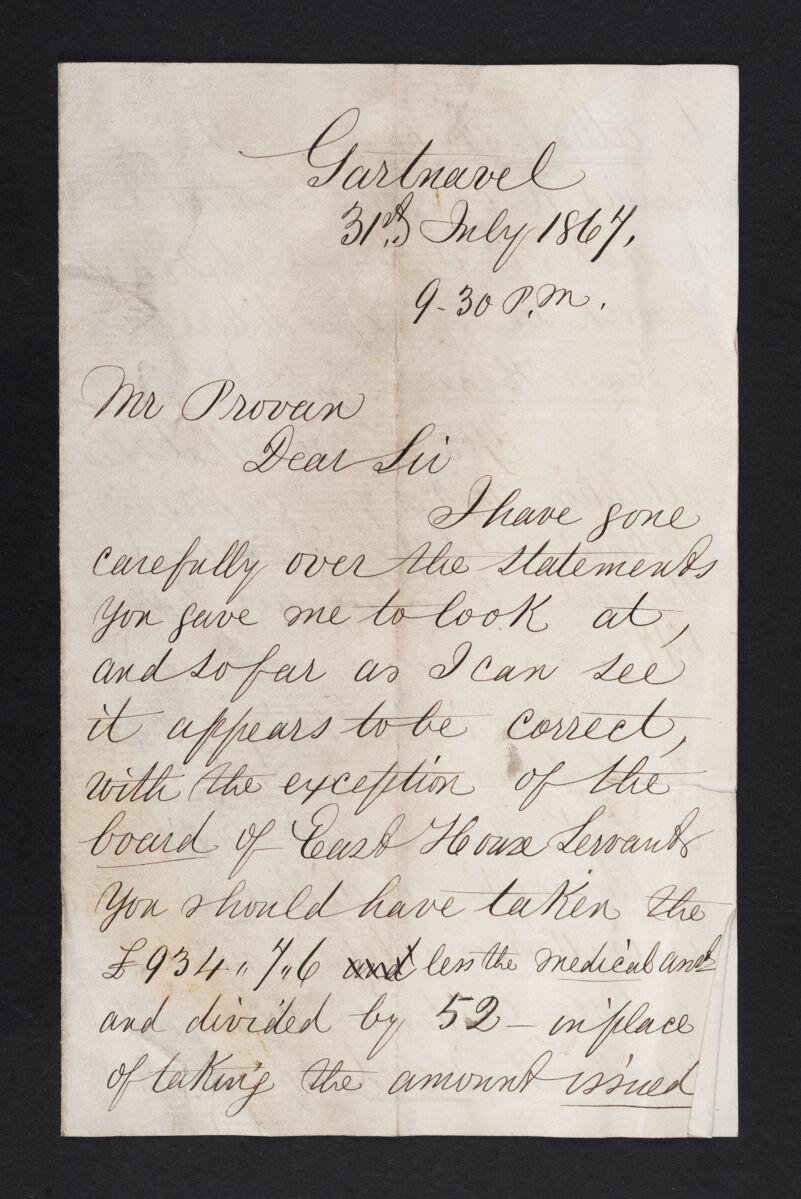 Gartnavel
31st July 1867.
9-30 P.M.
Mr Provan
Dear Sir
I have gone
carefully over the statements
You gave me to look at,
and so far as I can see
it appears to be correct,
with the exception of the
board of East House Servants
You should have taken the
£934,,7,,6 and less the medical and
and divided by 52 - in place
of taking the amount issued